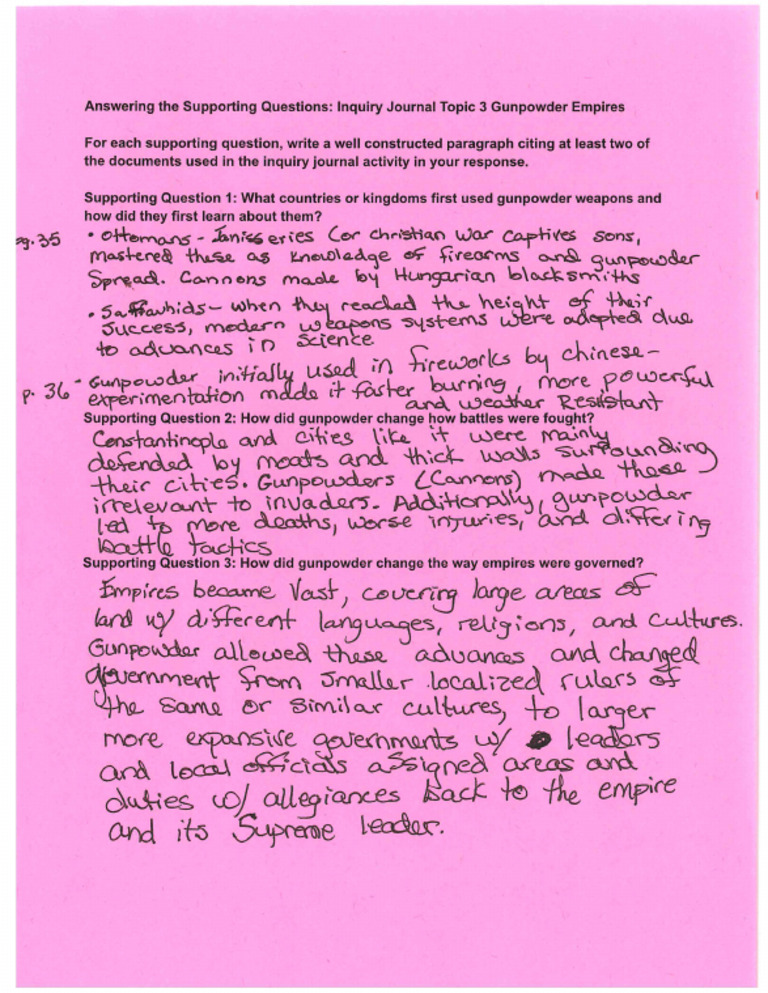 Answering the Supporting Questions: Inquiry Journal Topic 3 Gunpowder Empires
For each supporting question, write a well constructed paragraph citing at least two of
the documents used in the inquiry journal activity in your response.
Supporting Question 1: What countries or kingdoms first used gunpowder weapons and
how did they first learn about them?
pg. 35 • Ottomans - Janisseries (or christian war captives sons,
mastered these as knowledge of firearms and gunpowder
Spread. Cannons made by Hungarian blacksmiths
• Saffavhids - when they reached the height of their
success, modern weapons systems were adopted due
to advances in science
p. 36 - Gunpowder initially used in fireworks by chinese -
experimentation made it faster burning, more powerful
and weather Resistant
Supporting Question 2: How did gunpowder change how battles were fought?
Constantinople and cities like it were mainly
defended by moats and thick walls surrounding
their cities. Gunpowders (Cannons) made these
irrelevant to invaders. Additionally, gunpowder
led to more deaths, worse injuries, and differing
battle tactics
Supporting Question 3: How did gunpowder change the way empires were governed?
Empires became Vast, covering large areas of
land w/ different languages, religions, and cultures.
Gunpowder allowed these advances and changed
government from smaller localized rulers of
the same or similar cultures, to larger
more expansive governments w/ leaders
and local officials assigned areas and
duties w/ allegiances back to the empire
and its Supreme leader.